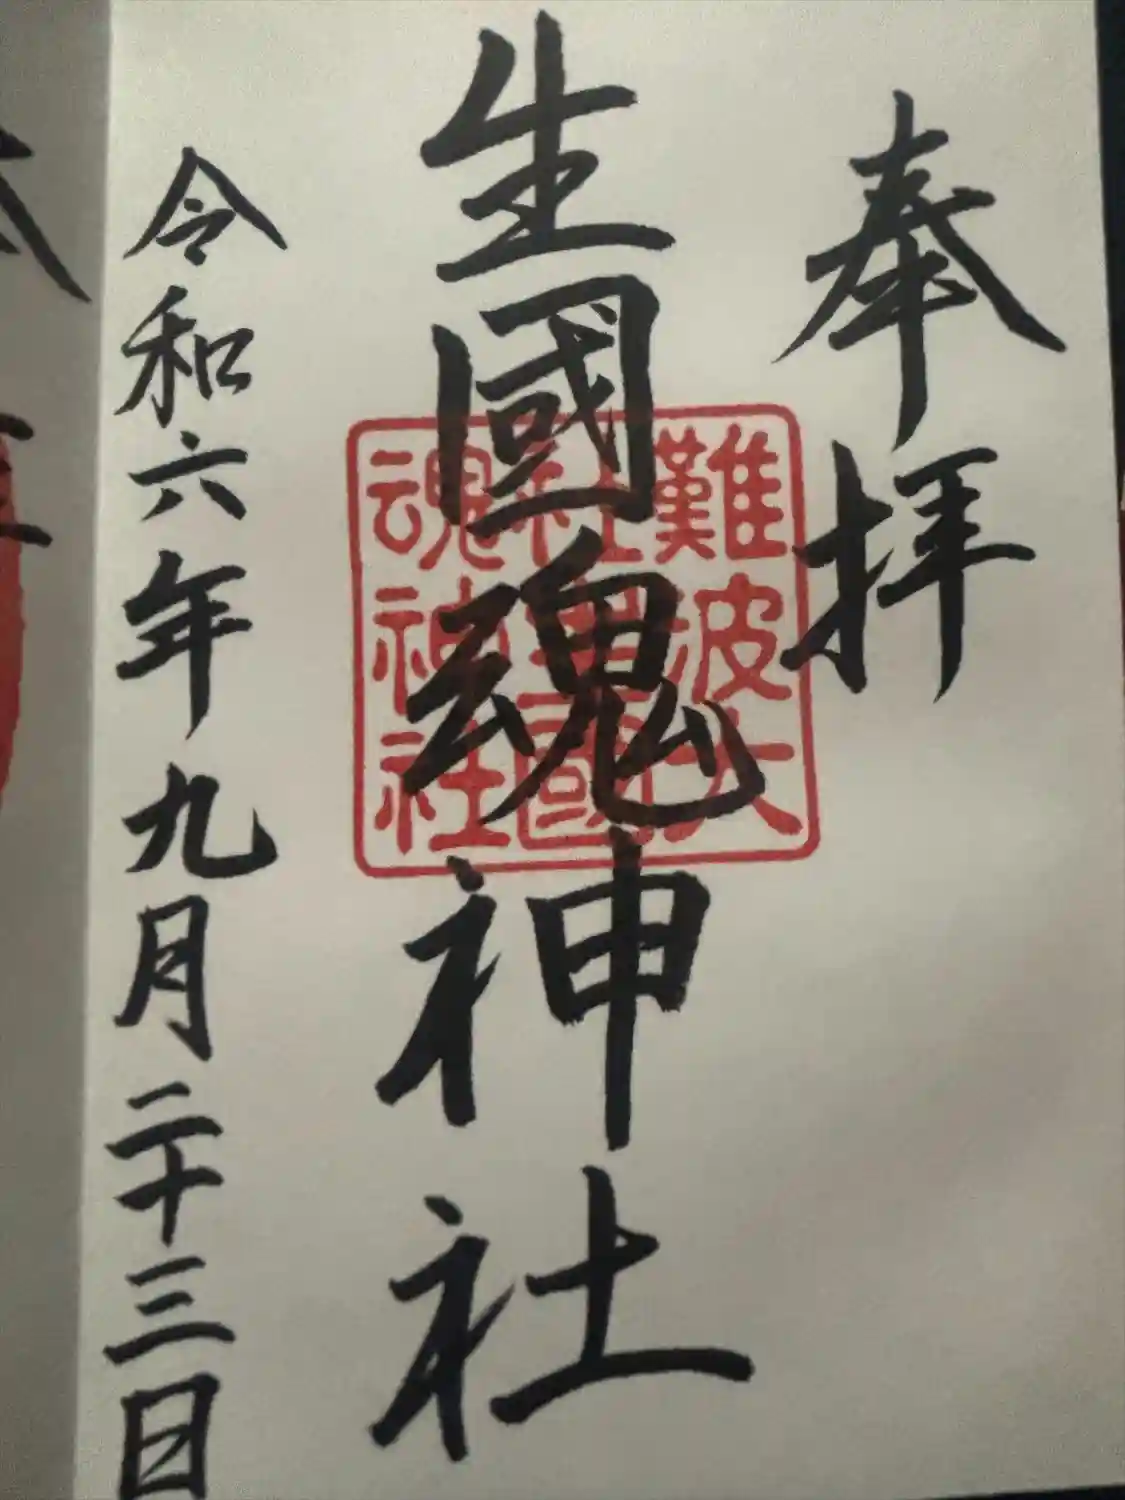 奉拝
生國魂神社
難波大
社生國
魂神社
令和六年九月二十三日